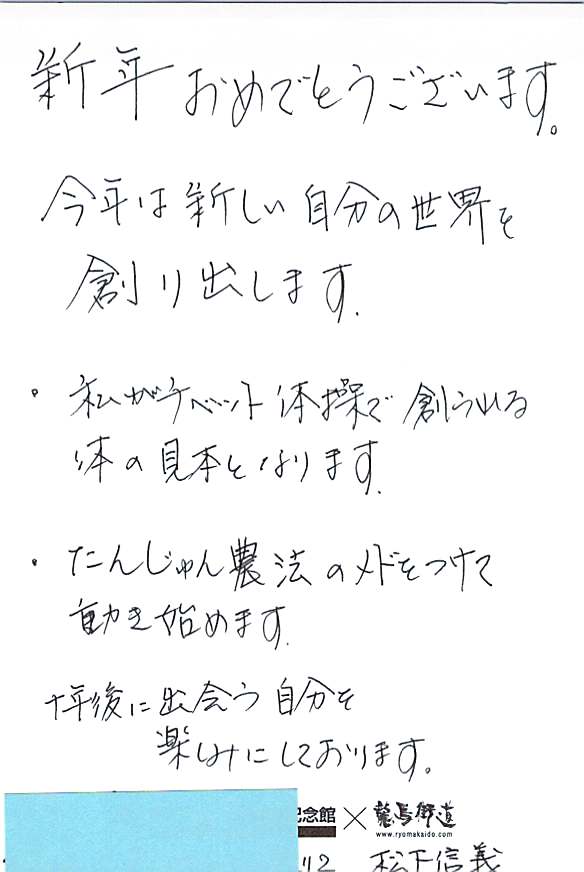 新年 おめでとうございます。
今年は新しい自分の世界を
創り出します.
・私がチベット体操で創られる
体の見本となります.
・たんじゅん農法のメドをつけて
動き始めます.
十年後に出会う自分を
楽しみにしております。
記念館×龍馬街道
www.ryomakaido.com
112 松下信義